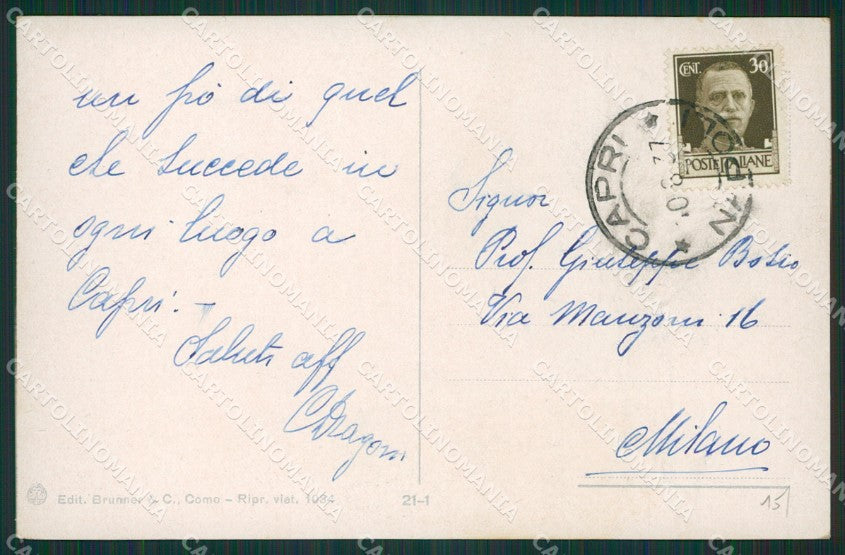 un pò di quel
che succede in
ogni luogo a
Capri. -
Saluti aff
CDragoni
Edit. Brunner & C., Como - Ripr. viet. 1034
21-1
CENT. 30
POSTE ITALIANE
CAPRI
NAPOLI
Signor
Prof. Giuseppe Bosio
Via Manzoni 16
Milano
15
CARTOLINOMANIA